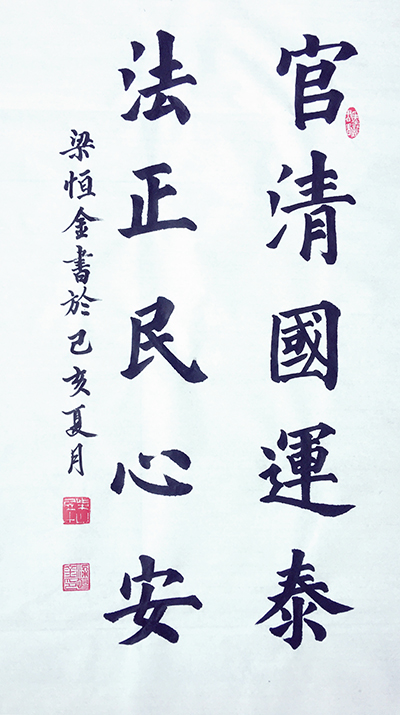 官清國運泰
法正民心安
梁恒金書於己亥夏月